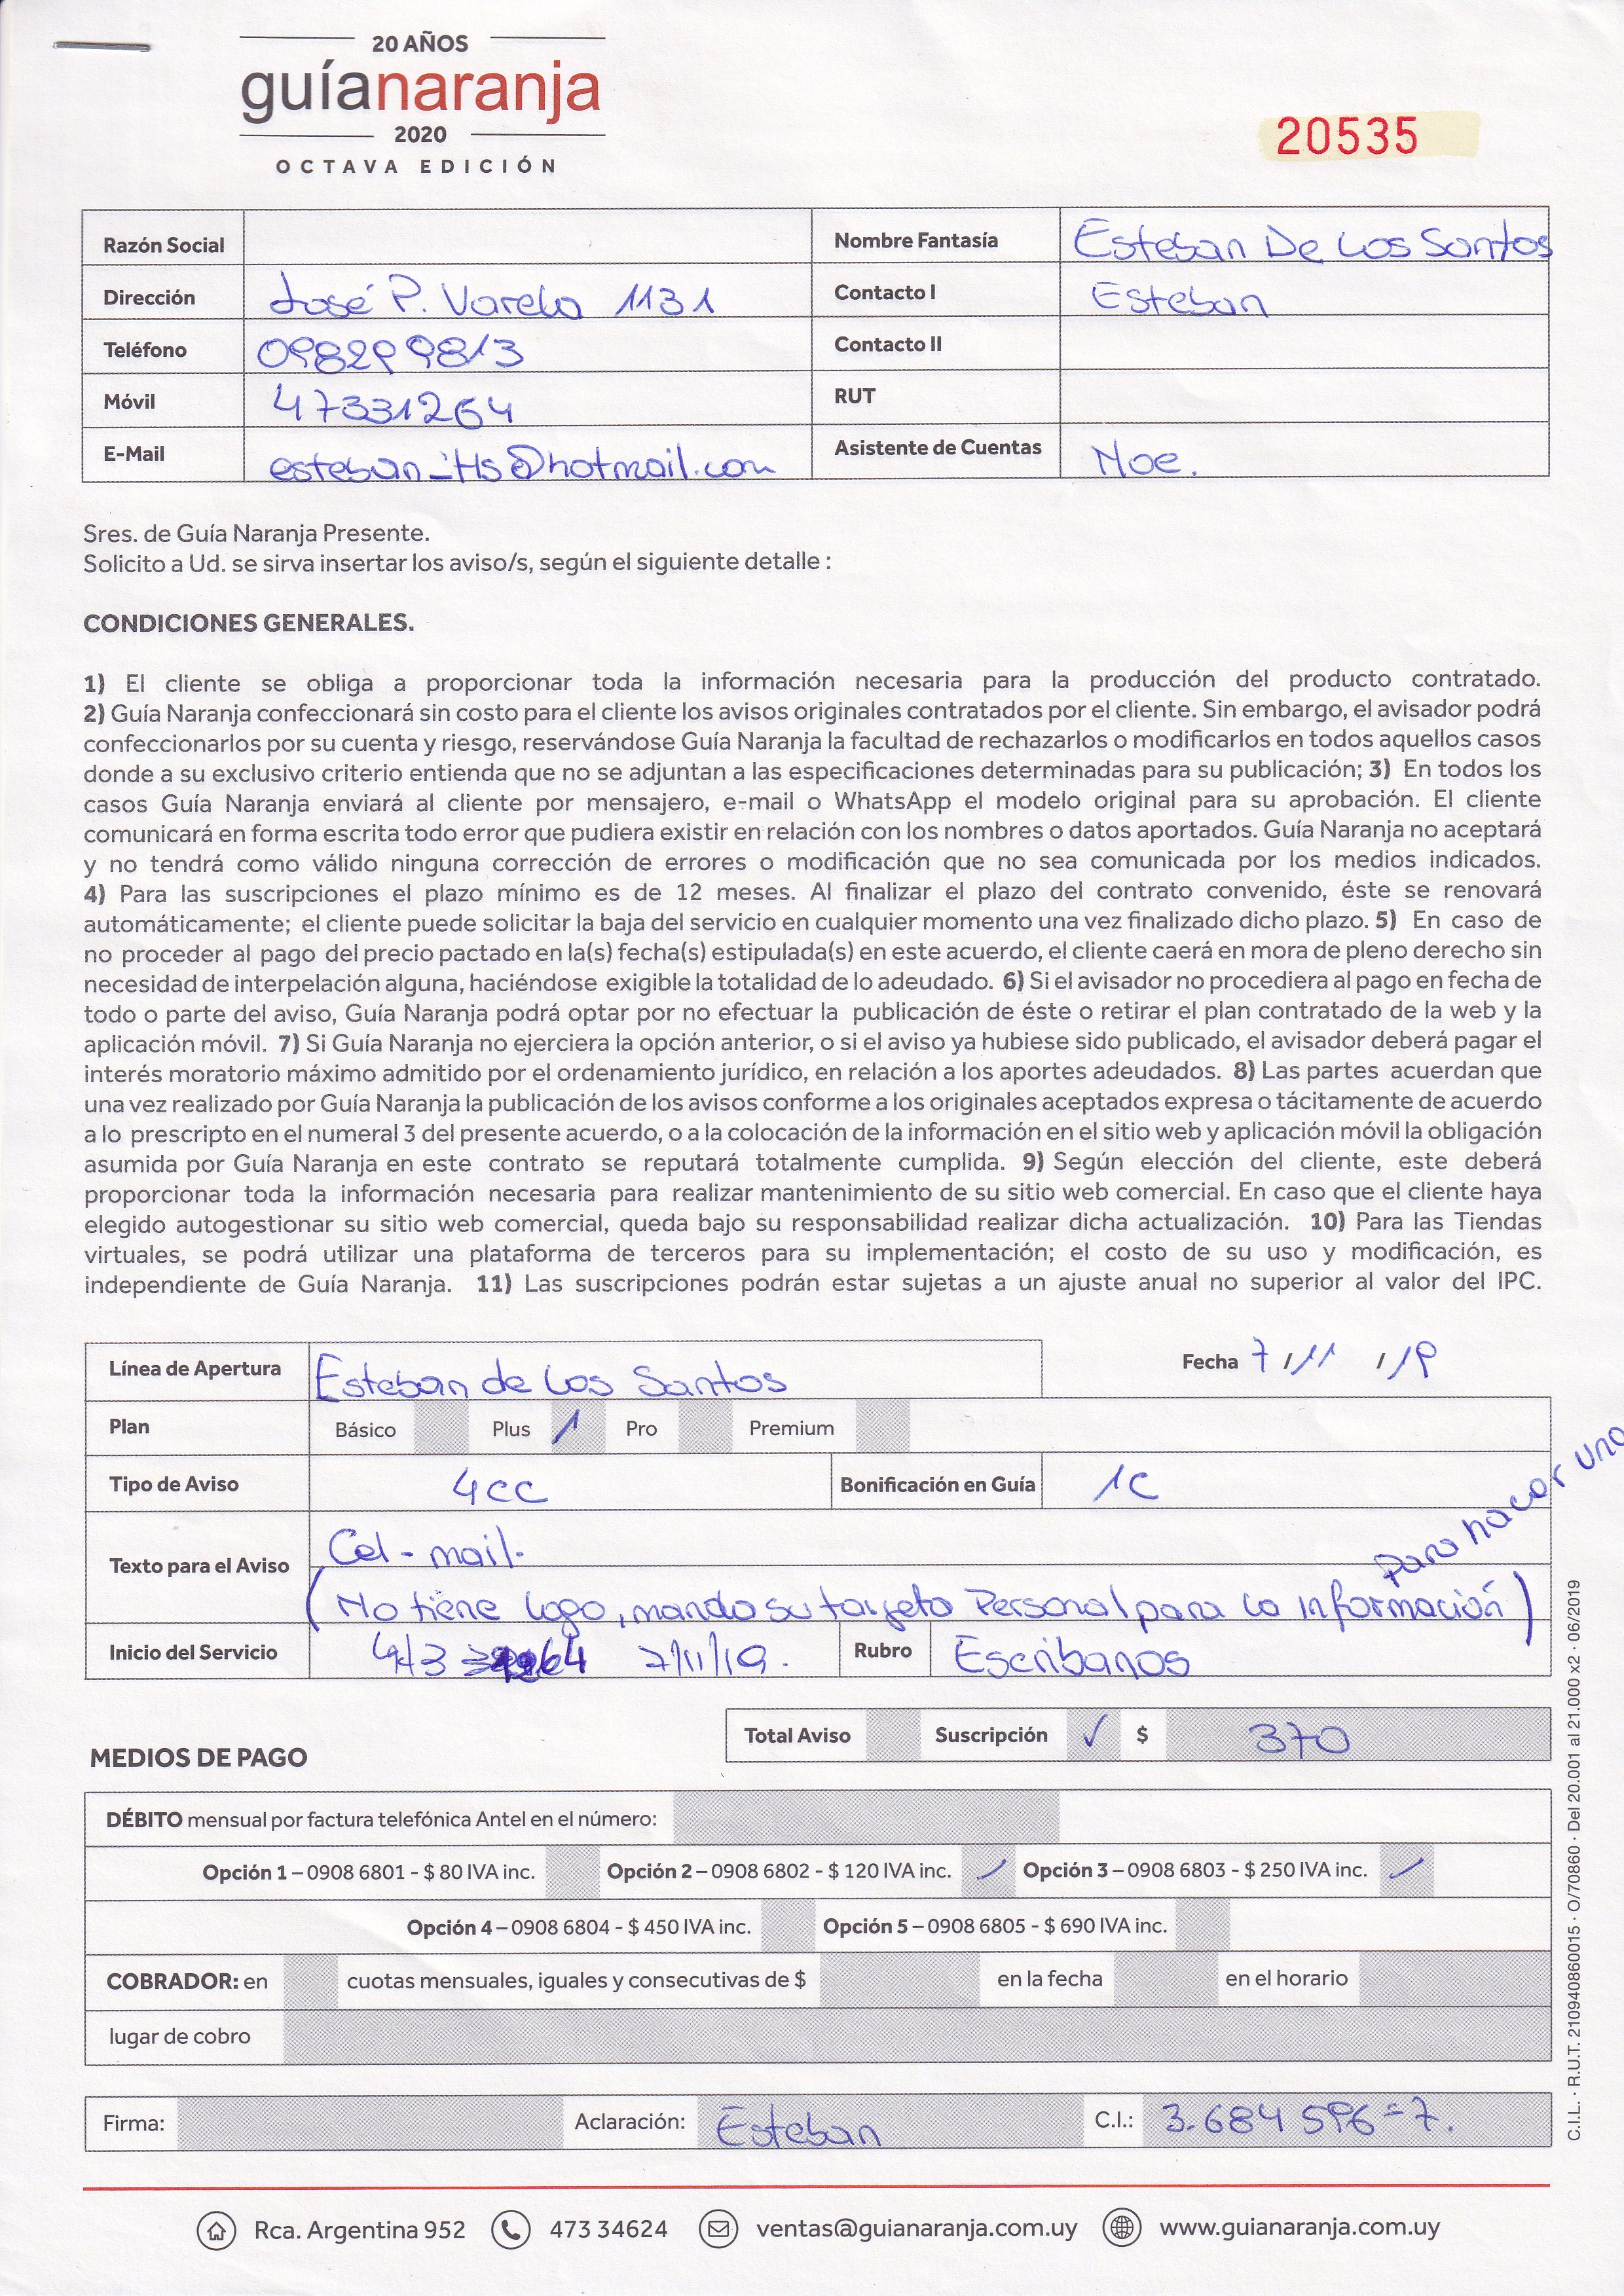 20 AÑOS
guíanaranja
2020
OCTAVA EDICIÓN
20535
Razón Social
Nombre Fantasía Esteban De Los Santos
Dirección José P. Varela 1131
Contacto I Esteban
Teléfono 098299813
Contacto II
Móvil 47331264
RUT
E-Mail esteban_Hs@hotmail.com
Asistente de Cuentas Noe.
Sres. de Guía Naranja Presente.
Solicito a Ud. se sirva insertar los aviso/s, según el siguiente detalle :
CONDICIONES GENERALES.
1) El cliente se obliga a proporcionar toda la información necesaria para la producción del producto contratado.
2) Guía Naranja confeccionará sin costo para el cliente los avisos originales contratados por el cliente. Sin embargo, el avisador podrá
confeccionarlos por su cuenta y riesgo, reservándose Guía Naranja la facultad de rechazarlos o modificarlos en todos aquellos casos
donde a su exclusivo criterio entienda que no se adjuntan a las especificaciones determinadas para su publicación; 3) En todos los
casos Guía Naranja enviará al cliente por mensajero, e-mail o WhatsApp el modelo original para su aprobación. El cliente
comunicará en forma escrita todo error que pudiera existir en relación con los nombres o datos aportados. Guía Naranja no aceptará
y no tendrá como válido ninguna corrección de errores o modificación que no sea comunicada por los medios indicados.
4) Para las suscripciones el plazo mínimo es de 12 meses. Al finalizar el plazo del contrato convenido, éste se renovará
automáticamente; el cliente puede solicitar la baja del servicio en cualquier momento una vez finalizado dicho plazo. 5) En caso de
no proceder al pago del precio pactado en la(s) fecha(s) estipulada(s) en este acuerdo, el cliente caerá en mora de pleno derecho sin
necesidad de interpelación alguna, haciéndose exigible la totalidad de lo adeudado. 6) Si el avisador no procediera al pago en fecha de
todo o parte del aviso, Guía Naranja podrá optar por no efectuar la publicación de éste o retirar el plan contratado de la web y la
aplicación móvil. 7) Si Guía Naranja no ejerciera la opción anterior, o si el aviso ya hubiese sido publicado, el avisador deberá pagar el
interés moratorio máximo admitido por el ordenamiento jurídico, en relación a los aportes adeudados. 8) Las partes acuerdan que
una vez realizado por Guía Naranja la publicación de los avisos conforme a los originales aceptados expresa o tácitamente de acuerdo
a lo prescripto en el numeral 3 del presente acuerdo, o a la colocación de la información en el sitio web y aplicación móvil la obligación
asumida por Guía Naranja en este contrato se reputará totalmente cumplida. 9) Según elección del cliente, este deberá
proporcionar toda la información necesaria para realizar mantenimiento de su sitio web comercial. En caso que el cliente haya
elegido autogestionar su sitio web comercial, queda bajo su responsabilidad realizar dicha actualización. 10) Para las Tiendas
virtuales, se podrá utilizar una plataforma de terceros para su implementación; el costo de su uso y modificación, es
independiente de Guía Naranja. 11) Las suscripciones podrán estar sujetas a un ajuste anual no superior al valor del IPC.
Línea de Apertura Esteban de los Santos
Fecha 7 / 11 / 19
Plan Básico Plus / Pro Premium
Tipo de Aviso 4cc
Bonificación en Guía 1C
Texto para el Aviso Cel - mail.
(No tiene logo, mando su tarjeta Personal para la información)
para hacer una
Inicio del Servicio 7/11/19.
Rubro Escribanos
Total Aviso Suscripción ✓ $ 370
MEDIOS DE PAGO
DÉBITO mensual por factura telefónica Antel en el número:
Opción 1 – 0908 6801 - $ 80 IVA inc. Opción 2 – 0908 6802 - $ 120 IVA inc. ✓ Opción 3 – 0908 6803 - $ 250 IVA inc. ✓
Opción 4 – 0908 6804 - $ 450 IVA inc. Opción 5 – 0908 6805 - $ 690 IVA inc.
COBRADOR: en cuotas mensuales, iguales y consecutivas de $ en la fecha en el horario
lugar de cobro
Firma: Aclaración: Esteban C.I.: 3.684 596=7.
Rca. Argentina 952 473 34624 ventas@guianaranja.com.uy www.guianaranja.com.uy
C.I.L. · R.U.T. 210940860015 · O/70860 · Del 20.001 al 21.000 x2 · 06/2019